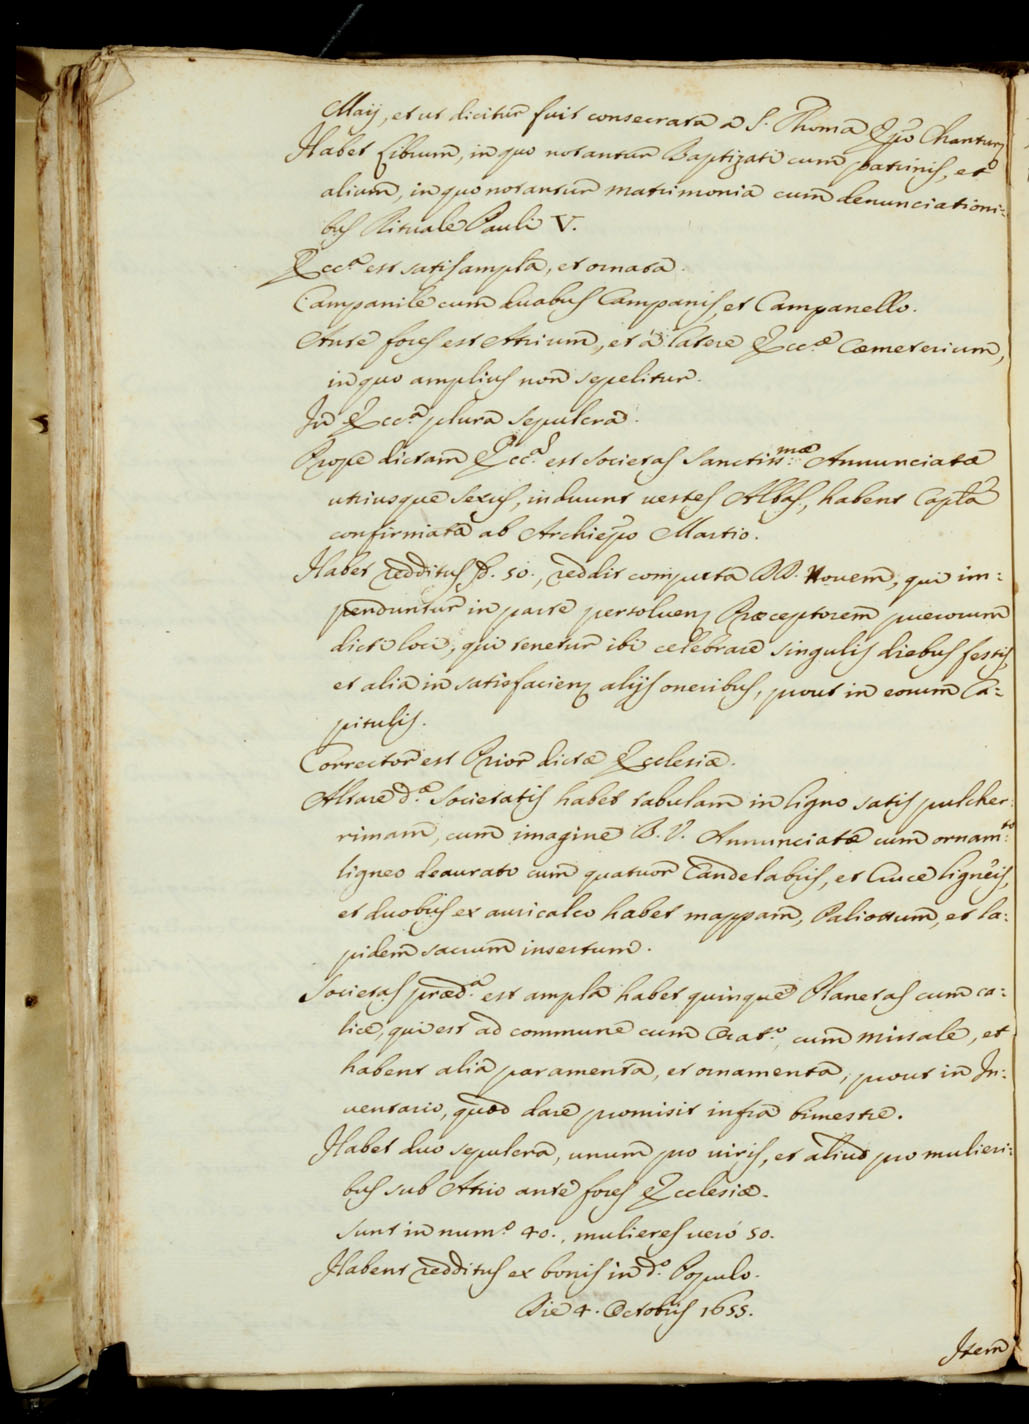 Maij, et ut dicitur fuit consecrata a S. Thoma Epõ Chantuar
Habet Librum, in quo notantur Baptizati cum patrinis, et
alium, in quo notantur matrimonia cum denunciationi=
bus Rituale Pauli V.
Eccª est satis ampla, et ornata.
Campanile cum duabus Campanis, et Campanello.
Ante fores est Atrium, et à latere Eccæ Cæmeterium,
in quo amplius non sepelitur.
In Eccª plura sepulcra.
Prope dictam Eccª est societas Sanctissmæ Annunciatæ
utriusque sexus, induunt vestes Albas, habent Capla
confirmata ab Archiepõ Martio.
Habet redditus 50., reddit computa DD. Novem, qui im=
penduntur in parte persoluen Præceptorem puerorum
dicti loci, qui tenetur ibi celebrare singulis diebus festis,
et alia in satisfacien alijs oneribus, prout in eorum Ca=
pitulis.
Corrector est Prior dictæ Ecclesiæ.
Altare d.æ Societatis habet tabulam in ligno satis pulcher=
rimam, cum imagine B. V. Annunciatæ cum ornam.to
ligneo deaurato cum quatuor Candelabris, et Cruce ligneis,
et duobus ex auricalco habet mappam, Paliottum, et la=
pidem sacrum insertum.
Societas præd.ª est ampla habet quinque Planetas cum ca=
lice, qui est ad commune cum Orat.º cum missale, et
habent alia paramenta, et ornamenta, prout in In=
ventario, quod dare promisit infra bimestre.
Habet duo sepulcra, unum pro viris, et aliud pro mulieri=
bus sub Atrio ante fores Ecclesiæ.
sunt in num.º 40., mulieres verò 50.
Habent redditus ex bonis in d.º Populo.
Die 4. Octobris 1655.
Item